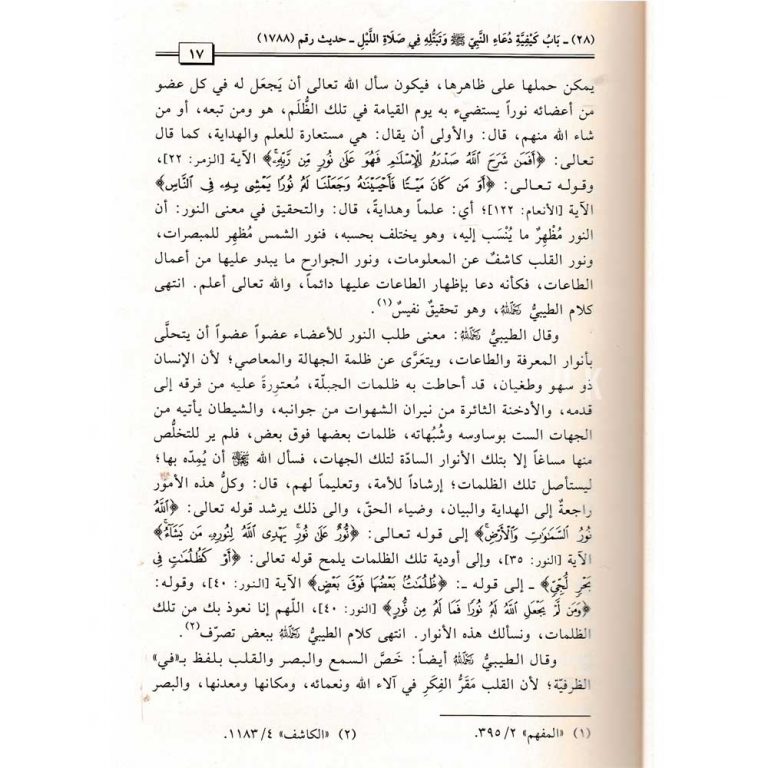 (٢٨) ـ بَابُ كَيْفِيَّةِ دُعَاءِ النَّبِيِّ ﷺ وَتَبَتُّلِهِ فِي صَلَاةِ اللَّيْلِ ـ حديث رقم (١٧٨٨)
١٧
يمكن حملها على ظاهرها، فيكون سأل الله تعالى أن يَجعَل له في كل عضو
من أعضائه نوراً يستضيء به يوم القيامة في تلك الظُّلَم، هو ومن تبعه، أو من
شاء الله منهم، قال: والأولى أن يقال: هي مستعارة للعلم والهداية، كما قال
تعالى: ﴿أَفَمَن شَرَحَ ٱللَّهُ صَدْرَهُۥ لِلْإِسْلَٰمِ فَهُوَ عَلَىٰ نُورٍ مِّن رَّبِّهِۦۚ﴾ الآية [الزمر: ٢٢]،
وقوله تعالى: ﴿أَوَ مَن كَانَ مَيْتًا فَأَحْيَيْنَٰهُ وَجَعَلْنَا لَهُۥ نُورًا يَمْشِى بِهِۦ فِى ٱلنَّاسِ﴾
الآية [الأنعام: ١٢٢]؛ أي: علماً وهدايةً، قال: والتحقيق في معنى النور: أن
النور مُظْهِرٌ ما يُنْسَب إليه، وهو يختلف بحسبه، فنور الشمس مُظهِر للمبصرات،
ونور القلب كاشفٌ عن المعلومات، ونور الجوارح ما يبدو عليها من أعمال
الطاعات، فكأنه دعا بإظهار الطاعات عليها دائماً، والله تعالى أعلم. انتهى
كلام الطيبيّ رحمه الله، وهو تحقيقٌ نفيسٌ(١).
وقال الطيبيُّ رحمه الله: معنى طلب النور للأعضاء عضواً عضواً أن يتحلَّى
بأنوار المعرفة والطاعات، ويتعَرَّى عن ظلمة الجهالة والمعاصي؛ لأن الإنسان
ذو سهو وطغيان، قد أحاطت به ظلمات الجبلّة، مُعتورةً عليه من فرقه إلى
قدمه، والأدخنة الثائرة من نيران الشهوات من جوانبه، والشيطان يأتيه من
الجهات الست بوساوسه وشُبُهاته، ظلمات بعضها فوق بعض، فلم ير للتخلُّص
منها مساغاً إلا بتلك الأنوار السادّة لتلك الجهات، فسأل الله ﷺ أن يُمِدّه بها؛
ليستأصل تلك الظلمات؛ إرشاداً للأمة، وتعليماً لهم، قال: وكلُّ هذه الأمور
راجعةٌ إلى الهداية والبيان، وضياء الحقّ، والى ذلك يرشد قوله تعالى: ﴿ٱللَّهُ
نُورُ ٱلسَّمَٰوَٰتِ وَٱلْأَرْضِۚ﴾ إلى قوله تعالى: ﴿نُّورٌ عَلَىٰ نُورٍۚ يَهْدِى ٱللَّهُ لِنُورِهِۦ مَن يَشَآءُۚ﴾
الآية [النور: ٣٥]، وإلى أودية تلك الظلمات يلمح قوله تعالى: ﴿أَوْ كَظُلُمَٰتٍ فِى
بَحْرٍ لُّجِّىٍّ﴾ ـ إلى قوله ـ: ﴿ظُلُمَٰتٌۢ بَعْضُهَا فَوْقَ بَعْضٍ﴾ الآية [النور: ٤٠]، وقوله:
﴿وَمَن لَّمْ يَجْعَلِ ٱللَّهُ لَهُۥ نُورًا فَمَا لَهُۥ مِن نُّورٍ﴾ [النور: ٤٠]، اللّهم إنا نعوذ بك من تلك
الظلمات، ونسألك هذه الأنوار. انتهى كلام الطيبيّ رحمه الله ببعض تصرّف(٢).
وقال الطيبيُّ رحمه الله أيضاً: خَصَّ السمع والبصر والقلب بلفظ بـ«في»
الظرفيّة؛ لأن القلب مَقَرُّ الفِكَرِ في آلاء الله ونعمائه، ومكانها ومعدنها، والبصر
(١) «المفهم» ٢/ ٣٩٥. (٢) «الكاشف» ٤/ ١١٨٣.